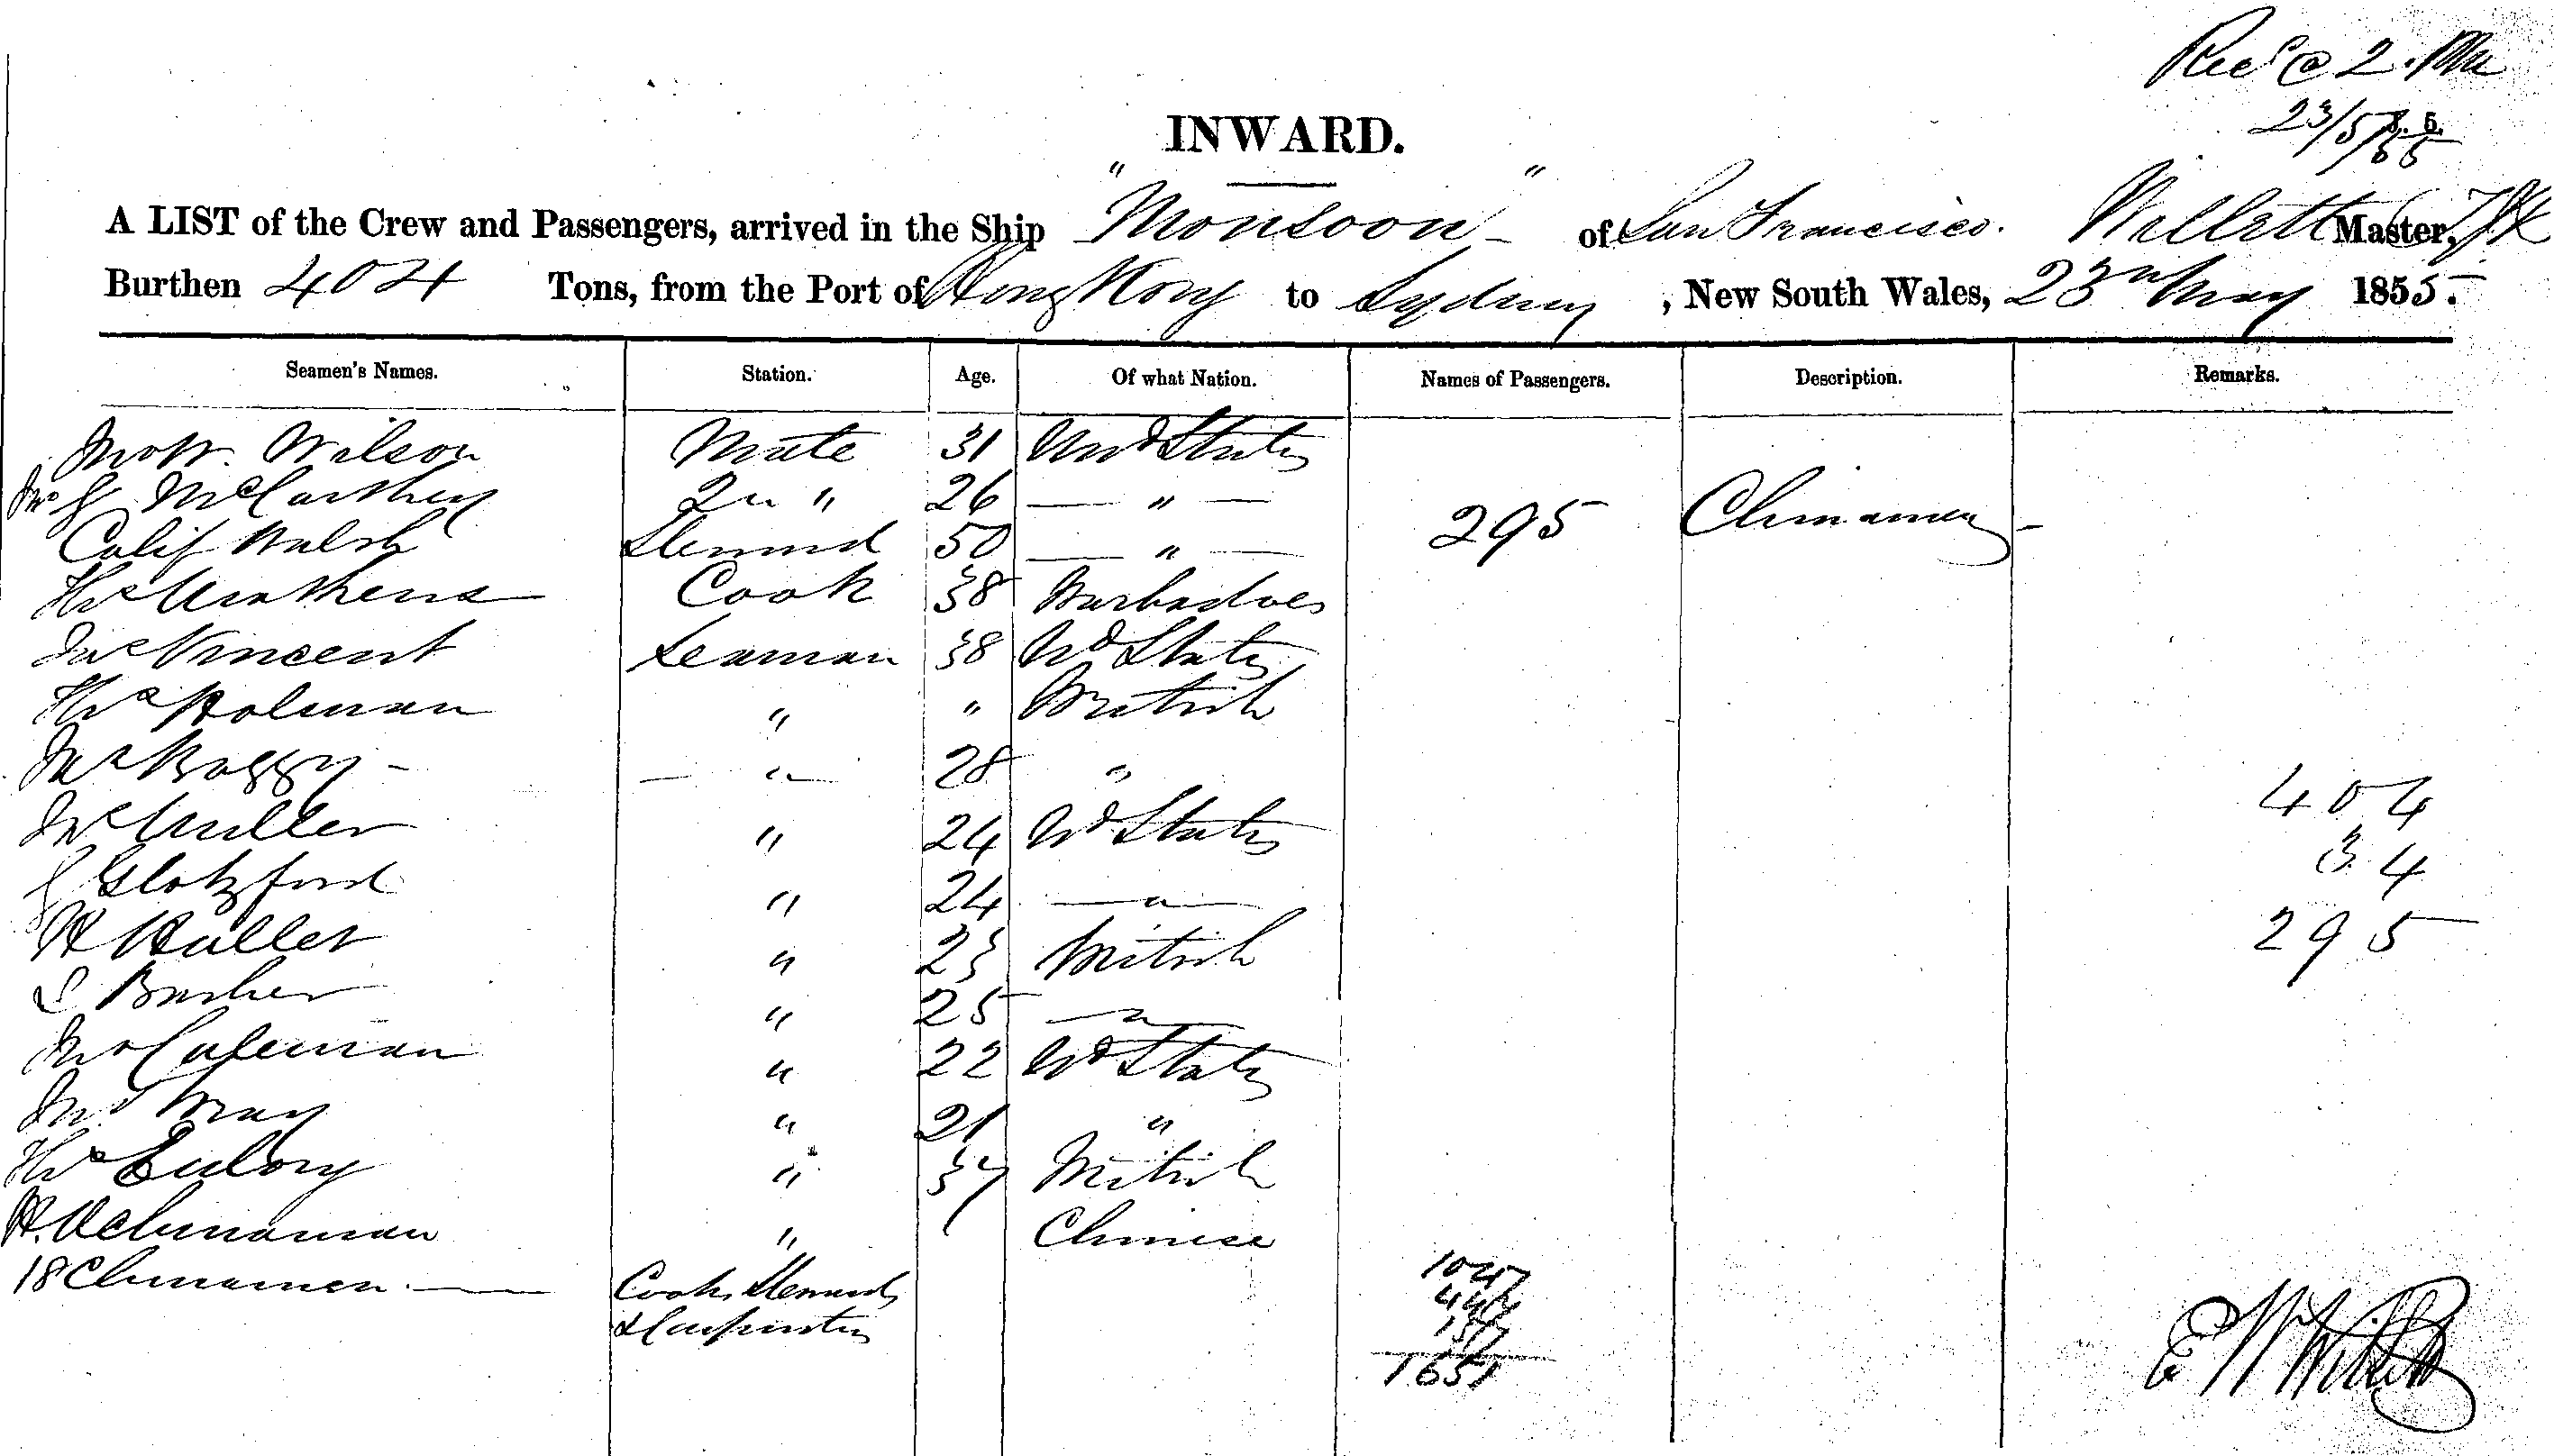 Recd @ 2. PM
23/5/55
INWARD.
A LIST of the Crew and Passengers, arrived in the Ship "Monsoon" of San Francisco. Willett Master,
Burthen 404 Tons, from the Port of Hong Kong to Sydney, New South Wales, 23rd May 1855.
Seamen's Names. Station. Age. Of what Nation. Names of Passengers. Description. Remarks.
Jno W. Wilson Mate 31 Und States
Jno J McCarthey 2n " 26 — " — 295 Chinamen -
Calif Walsh Steward 50 — " —
Cook 38 Barbadoes
Jas Vincent Seaman 38 Ud States
Thos Holman " " British
— " — 28 "
" 24 Ud States 404
" 24 — " — 34
H Hullet " 23 British 295
S Barber " 25 — " —
Jno Coleman " 22 Ud States
" 21 "
Thos " 37 British
" Chinese
18 Chinamen — Cooks Stewards
& Carpenters
1047
447
157
1651
E W Willett